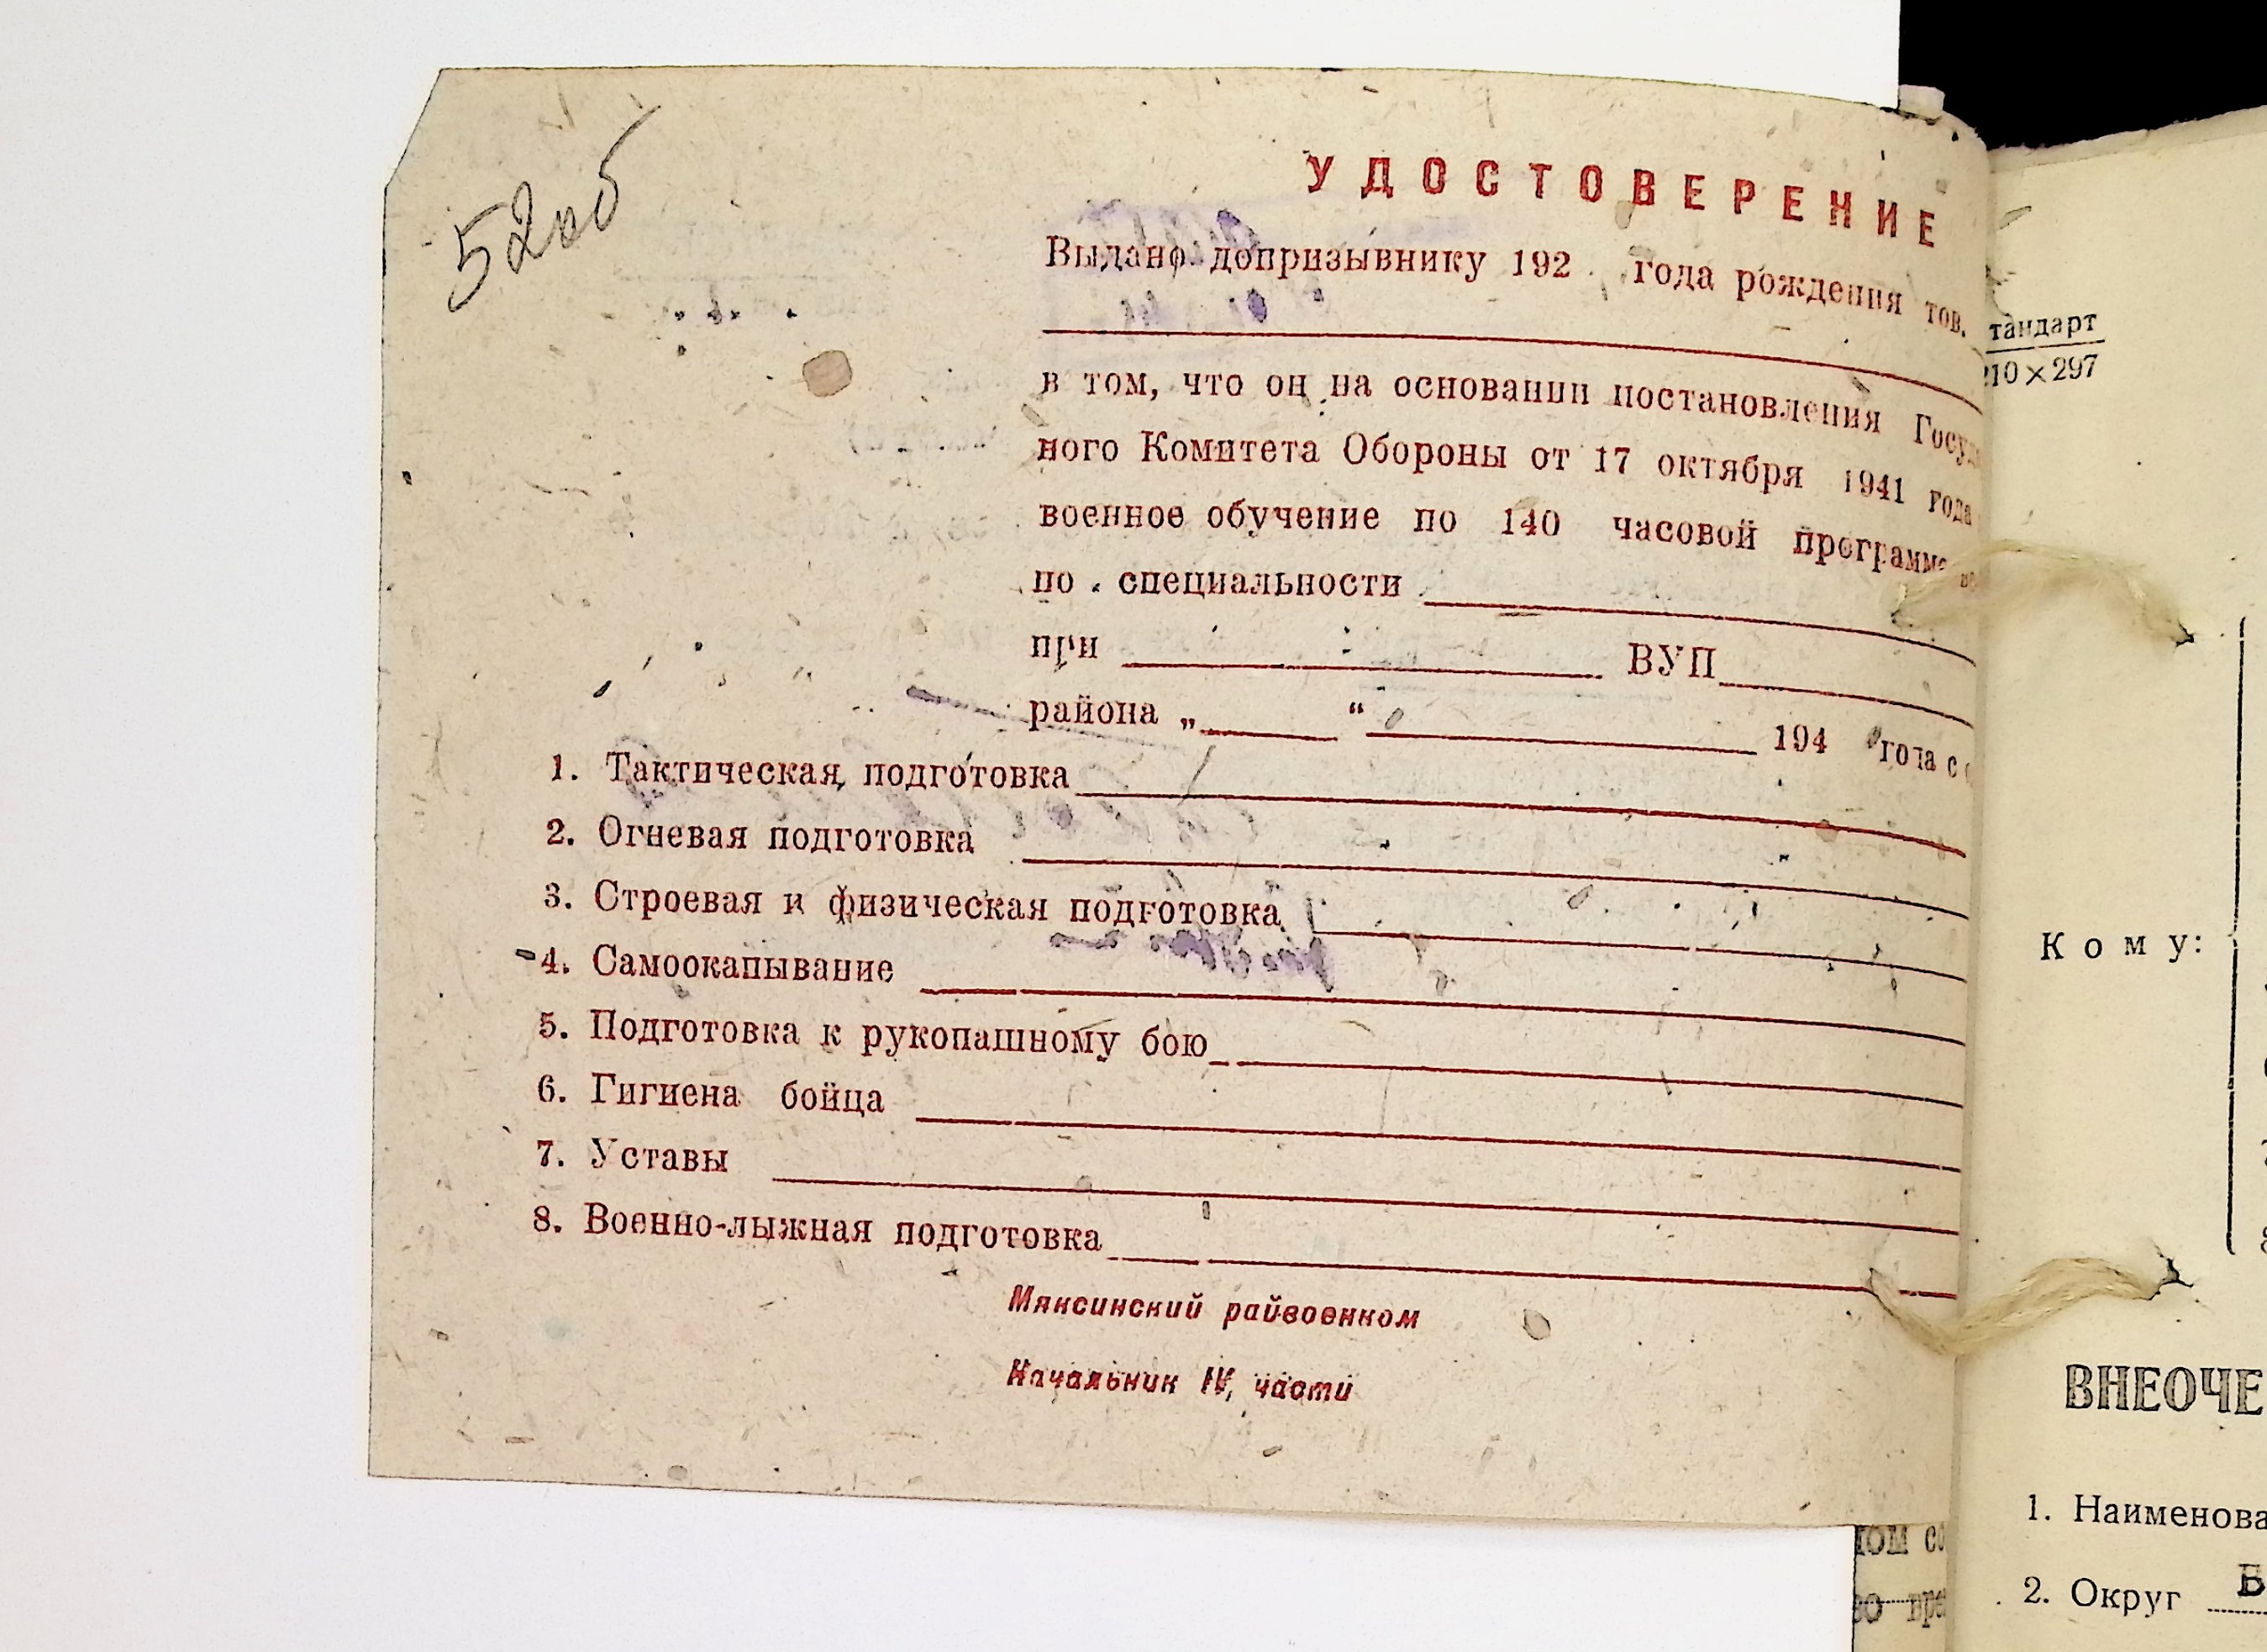 52об
УДОСТОВЕРЕНИЕ
Выдано допризывнику 192 года рождения тов.
в том, что он на основании постановления Госу
ного Комитета Обороны от 17 октября 1941 года
военное обучение по 140 часовой программе
по специальности
при ВУП
района „ “ 194 года с
1. Тактическая подготовка
2. Огневая подготовка
3. Строевая и физическая подготовка
4. Самоокапывание
5. Подготовка к рукопашному бою
6. Гигиена бойца
7. Уставы
8. Военно-лыжная подготовка
Мяксинский райвоенком
Начальник IV, части
тандарт
210×297
Кому:
ВНЕОЧЕ
1. Наименова
2. Округ